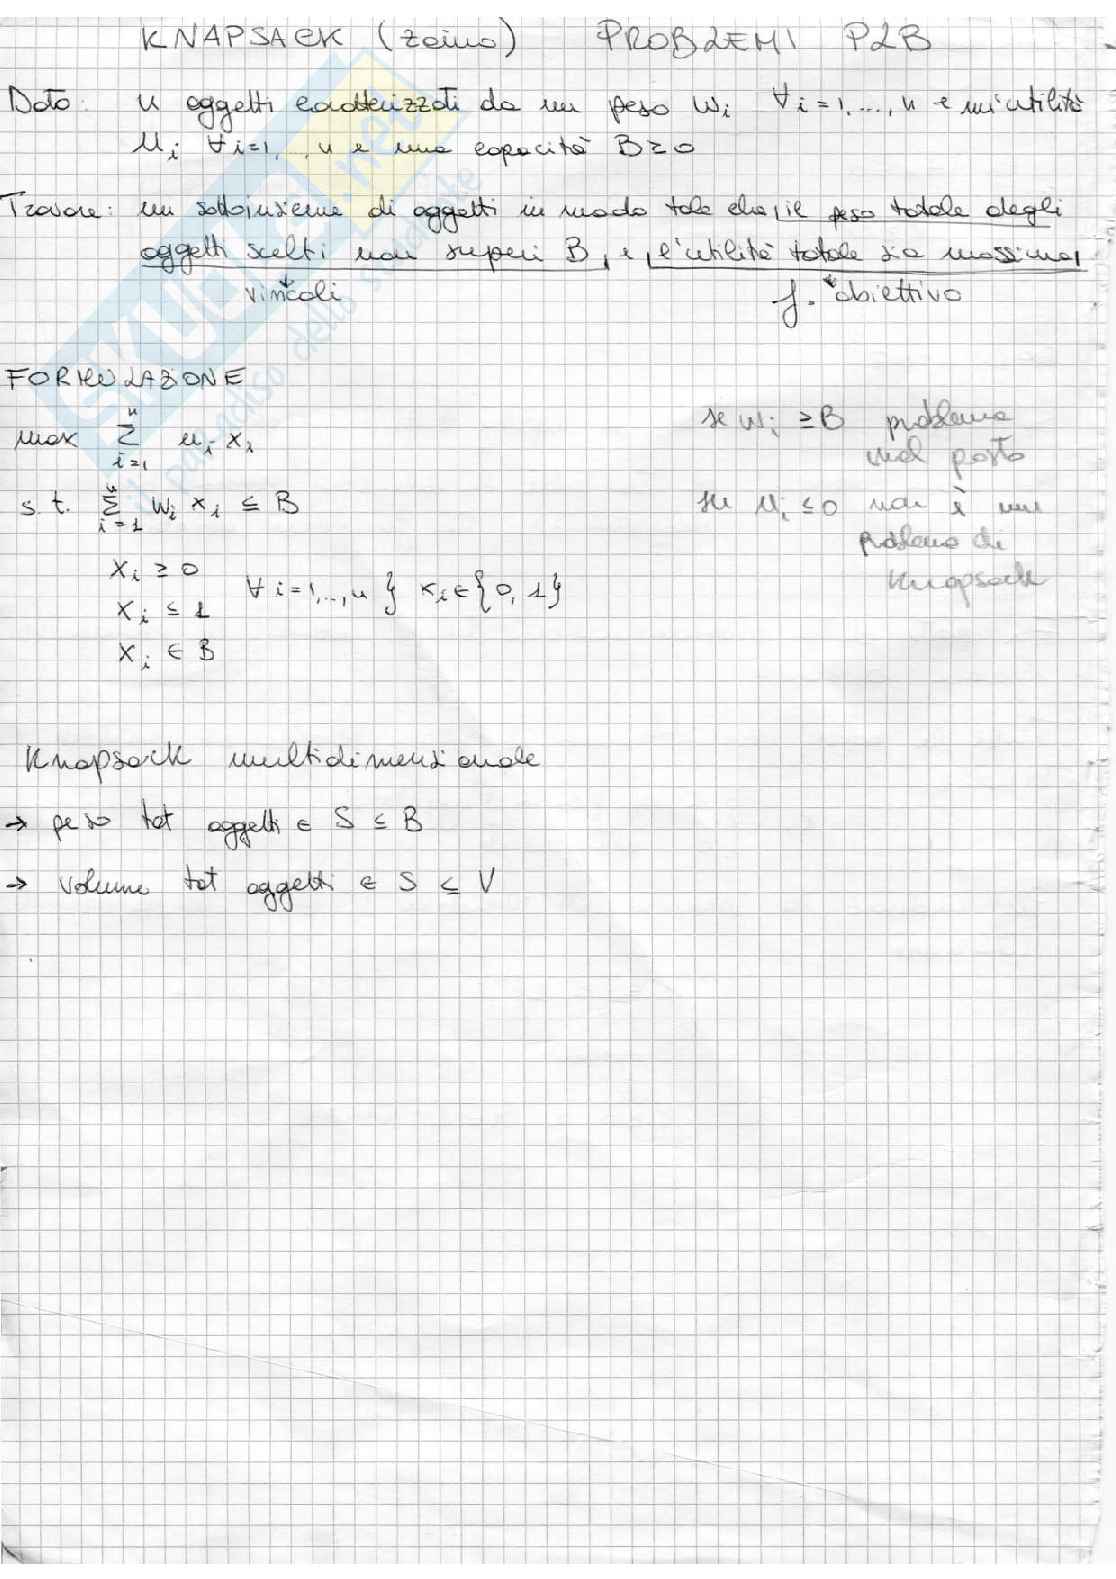 KNAPSACK (zaino) PROBLEMI PLB
Dato: n oggetti caratterizzati da un peso wi ∀i=1,...,n e un'utilità
ui ∀i=1,...,n e una capacità B≥0
Trovare: un sottoinsieme di oggetti in modo tale che, il peso totale degli
oggetti scelti non superi B, e, l'utilità totale sia massima,
vincoli f. obiettivo
FORMULAZIONE
max Σ i=1 n ui xi
s.t. Σ i=1 n wi xi ≤ B
xi ≥ 0
xi ≤ 1
xi ∈ B
∀i=1,..,n } xi∈{0,1}
se wi ≥B problema
mal posto
se ui ≤0 non è un
problema di
Knapsack
Knapsack multidimensionale
→ peso tot oggetti ∈ S ≤ B
→ volume tot oggetti ∈ S ≤ V
SKUOLA.net
il paradiso dello studente